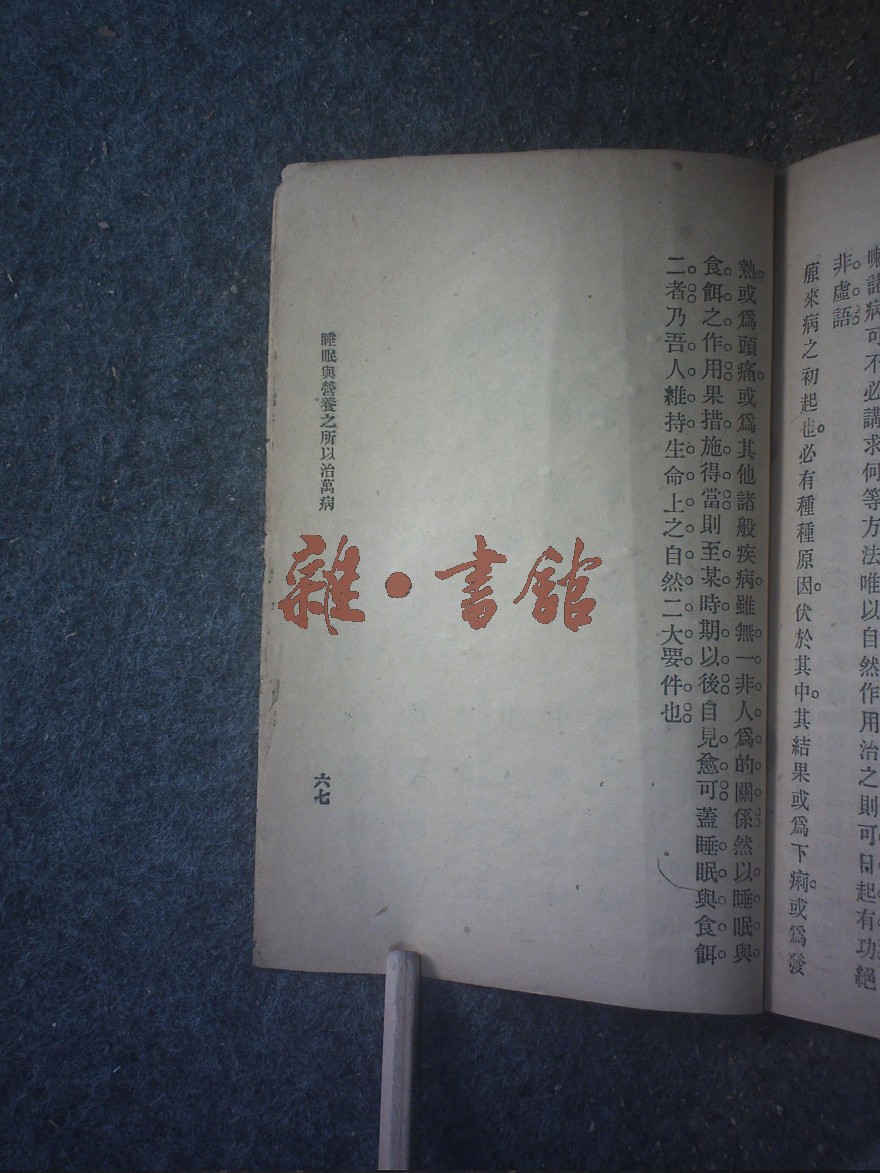 嚇諸病可不必講求何等方法唯以自然作用治之則可日起有功絕
非虛語。
原來病之初起也。必有種種原因。伏於其中。其結果或爲下痢。或爲發
熱。或爲頭痛。或爲其他諸般疾病。雖無一非人爲的關係。然以睡眠與
食餌之作用果措施得當則至某時期以後自見愈可蓋睡眠與食餌
二者乃吾人維持生命上之自然二大要件也。
睡眠與營養之所以治萬病
六七
雜·書館